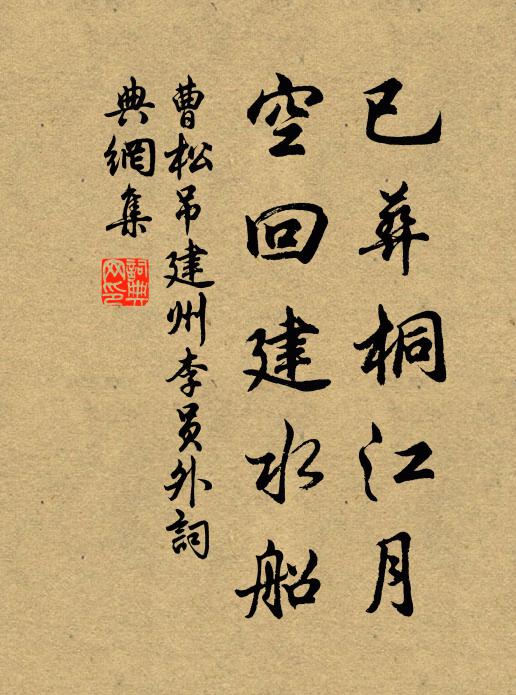 已葬桐江月
空回建水船
曹松吊建州李員外詞
典網集
詞典網印